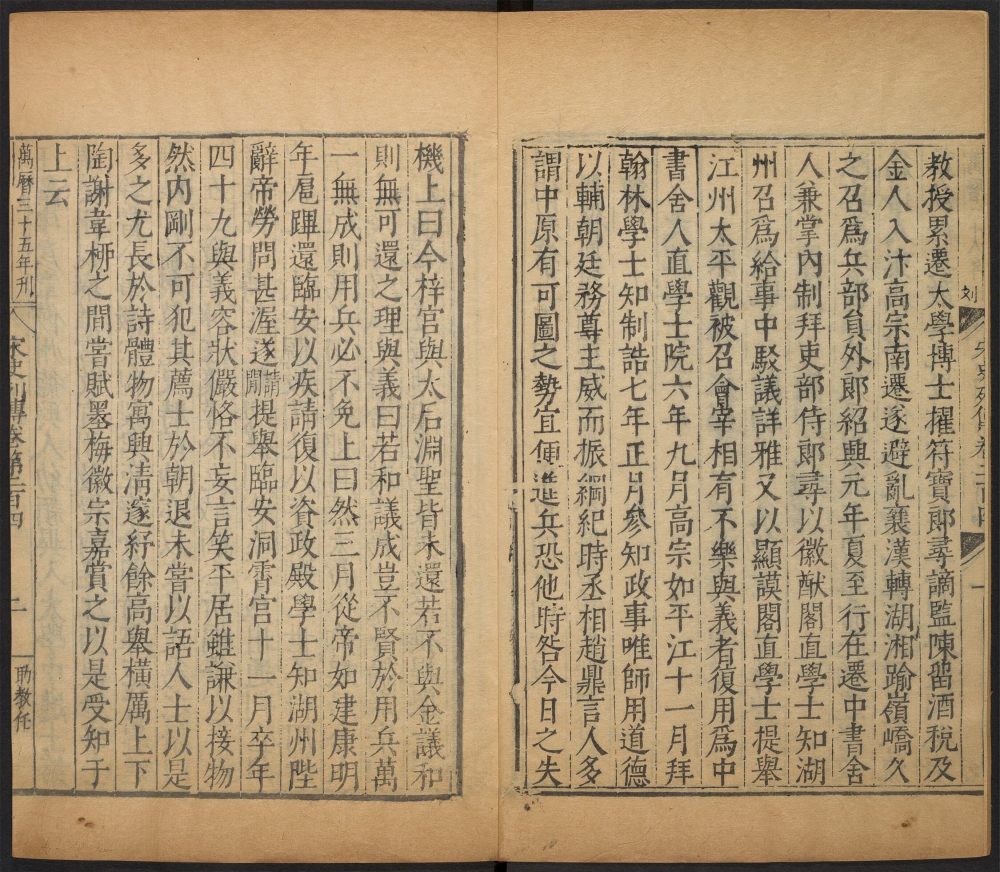 教授累遷太學博士擢符寶郎尋謫監陳留酒稅及
金人入汴高宗南遷遂避亂襄漢轉湖湘踰嶺嶠久
之召爲兵部員外郎紹興元年夏至行在遷中書舍
人兼掌內制拜吏部侍郎尋以徽猷閣直學士知湖
州召爲給事中駁議詳雅又以顯謨閣直學士提舉
江州太平觀被召會宰相有不樂與義者復用爲中
書舍人直學士院六年九月高宗如平江十一月拜
翰林學士知制誥七年正月參知政事唯師用道德
以輔朝廷務尊主威而振綱紀時丞相趙鼎言人多
謂中原有可圖之勢宜便進兵恐他時咎今日之失
機上曰今梓宮與太后淵聖皆未還若不與金議和
則無可還之理與義曰若和議成豈不賢於用兵萬
一無成則用兵必不免上曰然三月從帝如建康明
年扈蹕還臨安以疾請復以資政殿學士知湖州陛
辭帝勞問甚渥遂請閒提舉臨安洞霄宮十一月卒年
四十九與義容狀儼恪不妄言笑平居雖謙以接物
然內剛不可犯其薦士於朝退未嘗以語人士以是
多之尤長於詩體物寓興清邃紆餘高舉橫厲上下
陶謝韋柳之間嘗賦墨梅徽宗嘉賞之以是受知于
上云
萬曆三十五年刊
宋史列傳卷第二百四
二
助教任